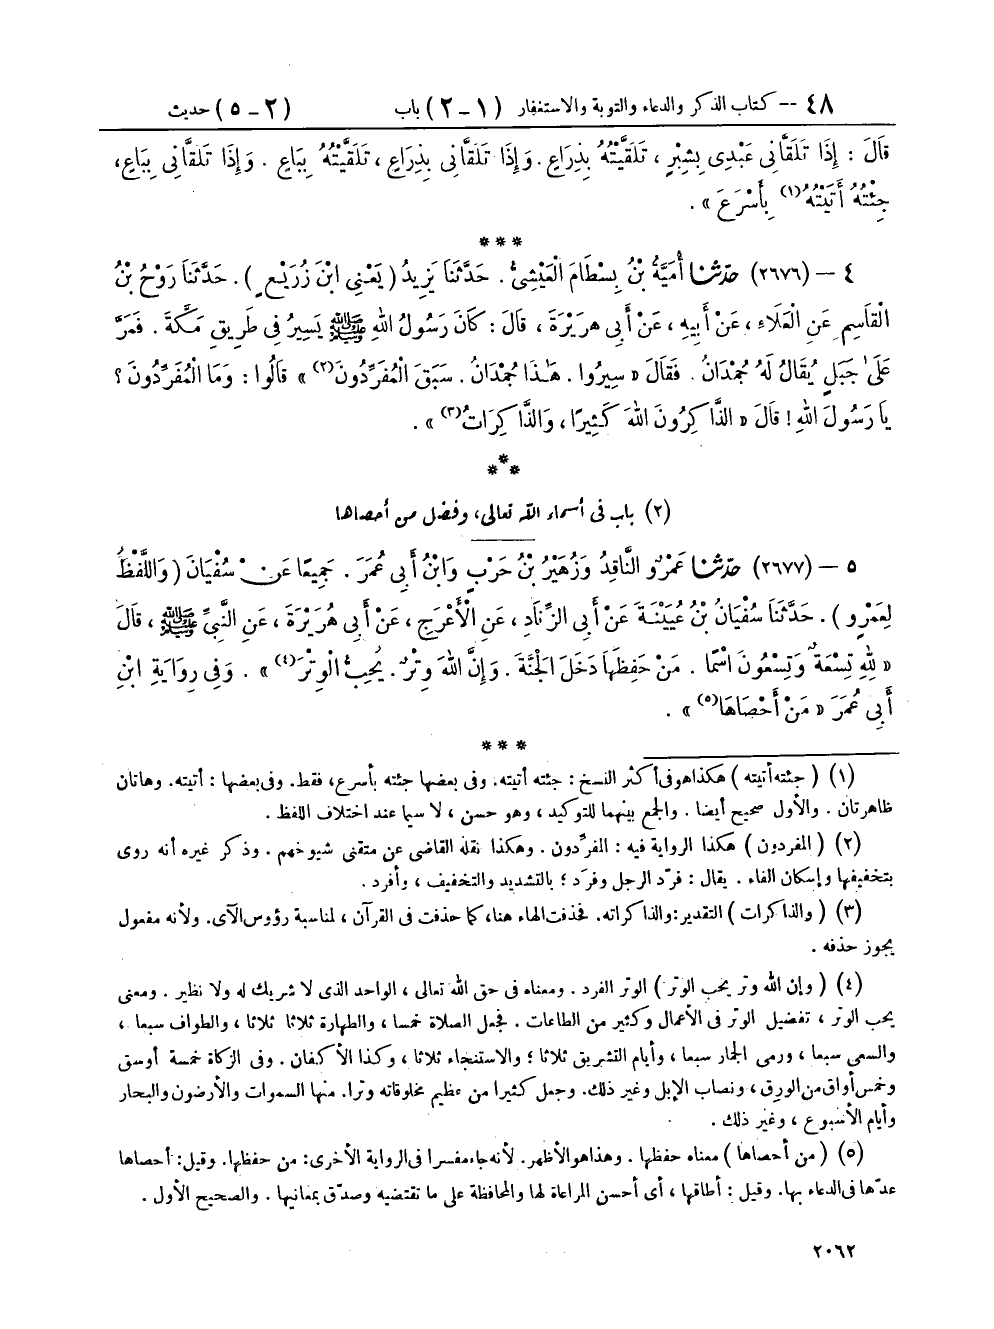 ٤٨ -- كتاب الذكر والدعاء والتوبة والاستغفار (١ - ٢) باب (٢ - ٥) حديث
قَالَ : إِذَا تَلَقَّانِى عَبْدِى بِشِبْرٍ ، تَلَقَّيْتُهُ بِذِرَاعٍ . وَإِذَا تَلَقَّانِى بِذِرَاعٍ ، تَلَقَّيْتُهُ بِبَاعٍ . وَإِذَا تَلَقَّانِى بِبَاعٍ،
جِئْتُهُ أَتَيْتُهُ(١) بِأَسْرَعَ » .
***
٤ – (٢٦٧٦) حدّثنا أُمَيَّةُ بْنُ بِسْطَامَ الْعَيْشِىُّ . حَدَّثَنَا يَزِيدُ ( يَعْنِى ابْنَ زُرَيْعٍ ) . حَدَّثَنَا رَوْحُ بْنُ
الْقَاسِمِ عَنِ الْعَلَاءِ ، عَنْ أَبِيهِ ، عَنْ أَبِى هُرَيْرَةَ ، قَالَ : كَانَ رَسُولُ اللهِ ﷺ يَسِيرُ فِى طَرِيقِ مَكَّةَ . فَمَرَّ
عَلَىٰ جَبَلٍ يُقَالُ لَهُ جُمْدَانُ . فَقَالَ « سِيرُوا . هَـٰذَا جُمْدَانُ . سَبَقَ الْمُفَرِّدُونَ(٢) » قَالُوا : وَمَا الْمُفَرِّدُونَ ؟
يَا رَسُولَ اللهِ ! قَالَ « الذَّاكِرُونَ اللهَ كَثِيرًا ، وَالذَّاكِرَاتُ(٣) » .
***
(٢) باب فى أسماء الله تعالى، وفضل من أحصاها
٥ – (٢٦٧٧) حدّثنا عَمْرٌو النَّاقِدُ وَزُهَيْرُ بْنُ حَرْبٍ وَابْنُ أَبِى عُمَرَ . جَمِيعًا عَنْ سُفْيَانَ ( وَاللَّفْظُ
لِعَمْرٍو ) . حَدَّثَنَا سُفْيَانُ بْنُ عُيَيْنَةَ عَنْ أَبِى الزِّنَادِ ، عَنِ الْأَعْرَجِ ، عَنْ أَبِى هُرَيْرَةَ ، عَنِ النَّبِىِّ ﷺ ، قَالَ
« لِلهِ تِسْعَةٌ وَتِسْعُونَ اسْمًا . مَنْ حَفِظَهَا دَخَلَ الْجَنَّةَ . وَإِنَّ اللهَ وِتْرٌ . يُحِبُّ الْوِتْرَ(٤) » . وَفِى رِوَايَةِ ابْنِ
أَبِى عُمَرَ « مَنْ أَحْصَاهَا(٥) » .
***
(١) ( جئته أتيته ) هكذا هو فى أكثر النسخ : جئته أتيته. وفى بعضها جئته بأسرع، فقط. وفى بعضها : أتيته. وهاتان
ظاهرتان . والأول صحيح أيضا . والجمع بينهما للتوكيد ، وهو حسن ، لا سيما عند اختلاف اللفظ .
(٢) ( المفردون ) هكذا الرواية فيه : المفرِّدون . وهكذا نقله القاضى عن متقنى شيوخهم . وذكر غيره أنه روى
بتخفيفها وإسكان الفاء . يقال : فرَّد الرجل وفَرَد ؛ بالتشديد والتخفيف ، وأفرد .
(٣) ( والذاكرات ) التقدير: والذاكراته. فحذفت الهاء هنا، كما حذفت فى القرآن ، لمناسبة رؤوس الآى. ولأنه مفعول
يجوز حذفه .
(٤) ( وإن الله وتر يحب الوتر ) الوتر الفرد . ومعناه فى حق الله تعالى ، الواحد الذى لا شريك له ولا نظير . ومعنى
يحب الوتر ، تفضيل الوتر فى الأعمال وكثير من الطاعات . فجعل الصلاة خمسا ، والطهارة ثلاثا ثلاثا ، والطواف سبعا ،
والسعى سبعا ، ورمى الجمار سبعا ، وأيام التشريق ثلاثا ؛ والاستنجاء ثلاثا ، وكذا الأكفان . وفى الزكاة خمسة أوسق
وخمس أواق من الورِق ، ونصاب الإبل وغير ذلك. وجعل كثيرا من عظيم مخلوقاته وترا. منها السموات والأرضون والبحار
وأيام الأسبوع ، وغير ذلك .
(٥) ( من أحصاها ) معناه حفظها . وهذا هو الأظهر. لأنه جاء مفسرا فى الرواية الأخرى: من حفظها. وقيل: أحصاها
عدّها فى الدعاء بها. وقيل : أطاقها ، أى أحسن المراعاة لها والمحافظة على ما تقتضيه وصدّق بمعانيها . والصحيح الأول .
٢٠٦٢